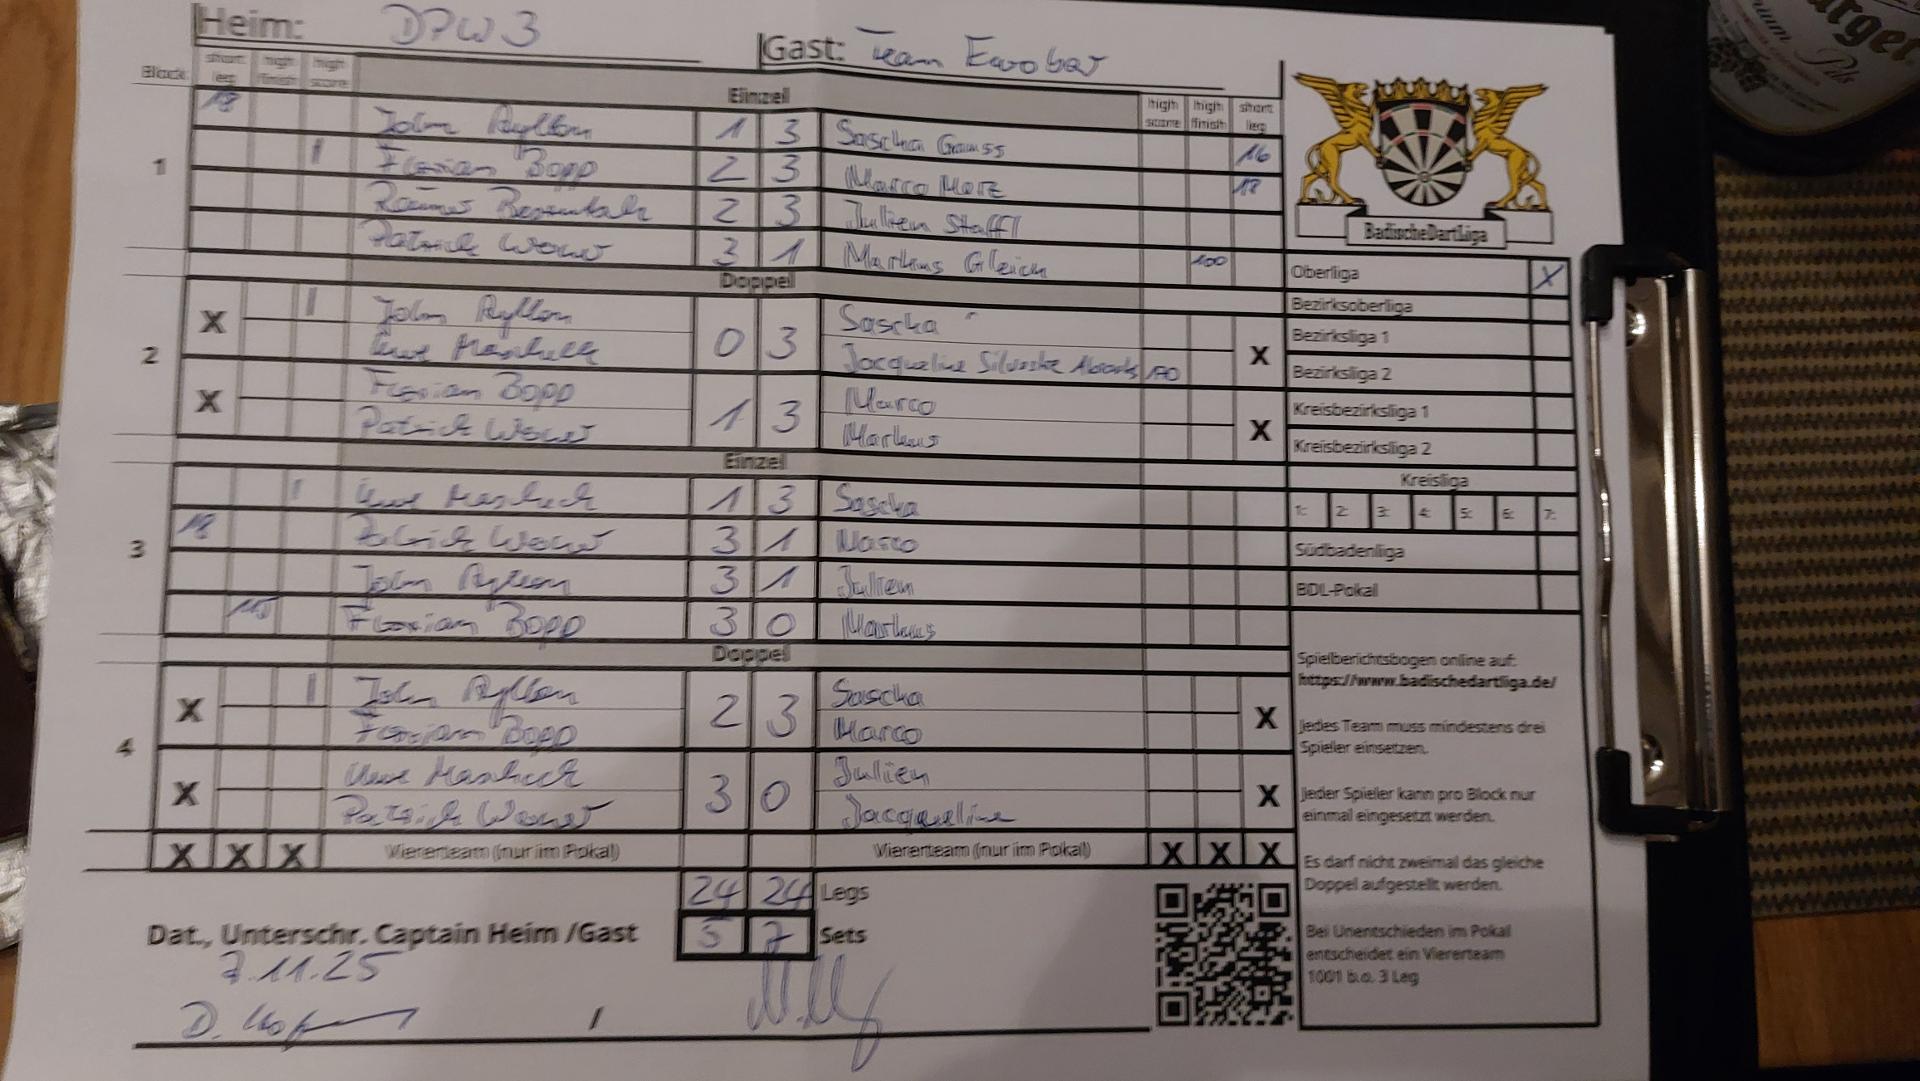 Heim: DPW 3 Gast: Team Eurobar
Block short leg high finish high score Einzel high score high finish short leg
1
18 John Ryllon 1 3 Sascha Gauss 16
I Florian Bopp 2 3 Marco Merz 18
2 3 Julien Staffl
Patrick 3 1 Markus Gleich 100
Doppel
2
X I John Ryllon 0 3 Sascha X
Uwe Jacqueline Silvestre 170
X Florian Bopp 1 3 Marco X
Patrick Markus
Einzel
3
I Uwe 1 3 Sascha
18 Patrick 3 1 Marco
John Ryllon 3 1 Julien
115 Florian Bopp 3 0 Markus
Doppel
4
X I John Ryllon 2 3 Sascha X
Florian Bopp Marco
X Uwe 3 0 Julien X
Patrick Jacqueline
X X X Viererteam (nur im Pokal) Viererteam (nur im Pokal) X X X
24 24 Legs
5 7 Sets
Dat., Unterschr. Captain Heim /Gast
7.11.25
D. /
BadischeDartLiga
Oberliga X
Bezirksoberliga
Bezirksliga 1
Bezirksliga 2
Kreisbezirksliga 1
Kreisbezirksliga 2
Kreisliga
1: 2: 3: 4: 5: 6: 7:
Südbadenliga
BDL-Pokal
Spielberichtsbogen online auf:
https://www.badischedartliga.de/
Jedes Team muss mindestens drei
Spieler einsetzen.
Jeder Spieler kann pro Block nur
einmal eingesetzt werden.
Es darf nicht zweimal das gleiche
Doppel aufgestellt werden.
Bei Unentschieden im Pokal
entscheidet ein Viererteam
1001 b.o. 3 Leg
Pils